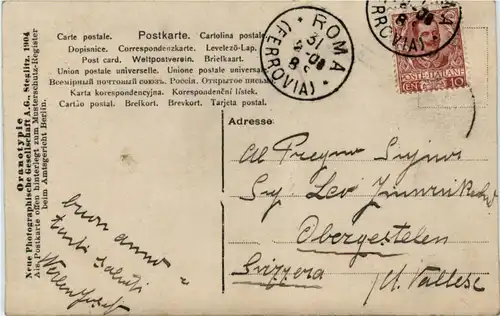 Carte postale. Postkarte. Cartolina postale.
Dopisnice. Correspondenzkarte. Levelező-Lap.
Post card. Weltpostverein. Briefkaart.
Union postale universelle. Unione postale universale.
Всемірный почтовый союзъ. Россія. Открытое письмо.
Karta korespondencyjna. Korespondenční lístek.
Cartão postal. Brefkort. Brevkort. Tarjeta postal.
ROMA
(FERROVIA)
31
8
ROMA
(FERROVIA)
POSTE ITALIANE
CENT 10
Oranotypie
Neue Photographische Gesellschaft A.G., Steglitz. 1904
Als Postkarte offen hinterlegt zum Musterschutz-Register
beim Amtsgericht Berlin.
Adresse
Al Pregmo Signor
Sig. Leo
Obergestelen
Svizzera
(Ct. Vallese
buon anno e
tanti saluti